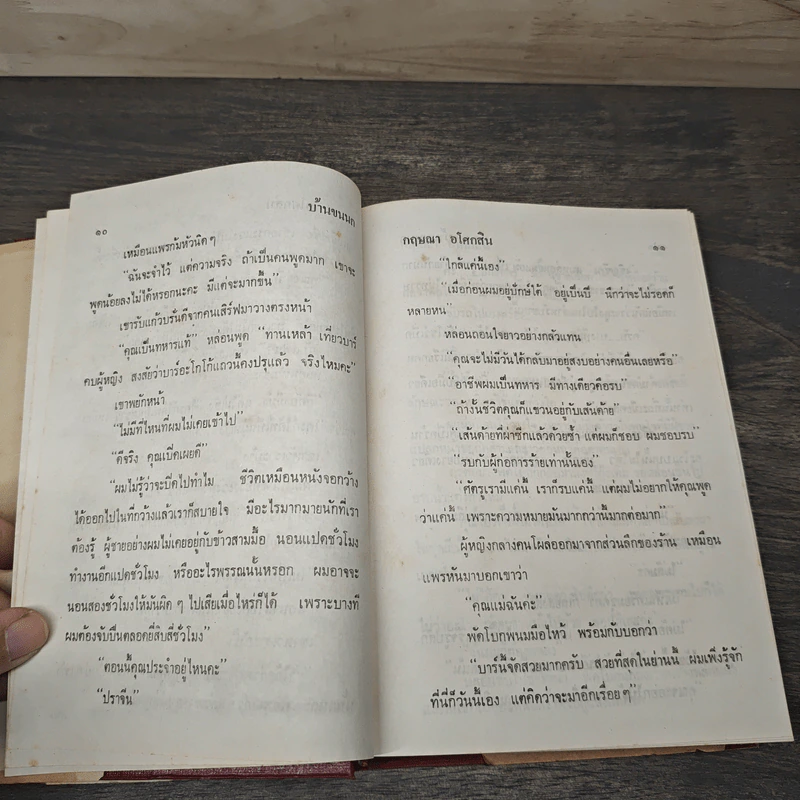 ๑๐
บ้านขนนก
เหมือนแพรก้มหัวนิดๆ
“ฉันจะจำไว้ แต่ความจริง ถ้าเป็นคนพูดมาก เขาจะ
พูดน้อยลงไม่ได้หรอกนะคะ มีแต่จะมากขึ้น”
เขารับแก้วบรั่นดีจากคนเสิร์ฟมาวางตรงหน้า
“คุณเป็นทหารแท้” หล่อนพูด “ทานเหล้า เที่ยวบาร์
คบผู้หญิง สงสัยว่าบาร์อะโกโก้แถวนี้คงปรุแล้ว จริงไหมคะ”
เขาพยักหน้า
“ไม่มีที่ไหนที่ผมไม่เคยเข้าไป”
“ดีจริง คุณเปิดเผยดี”
“ผมไม่รู้ว่าจะปิดไปทำไม ชีวิตเหมือนหนังจอกว้าง
ได้ออกไปในที่กว้างแล้วเราก็สบายใจ มีอะไรมากมายนักที่เรา
ต้องรู้ ผู้ชายอย่างผมไม่เคยอยู่กับข้าวสามมื้อ นอนแปดชั่วโมง
ทำงานอีกแปดชั่วโมง หรืออะไรพรรณนั้นหรอก ผมอาจจะ
นอนสองชั่วโมงให้มันผิดๆ ไปเสียเมื่อไหร่ก็ได้ เพราะบางที
ผมต้องจับปืนตลอดยี่สิบสี่ชั่วโมง”
“ตอนนี้คุณประจำอยู่ไหนคะ”
“ปราจีน”
กฤษณา อโศกสิน
๑๑
“ใกล้แค่นี้เอง”
“เมื่อก่อนผมอยู่ปักษ์ใต้ อยู่เป็นปี นึกว่าจะไม่รอดก็
หลายหน”
หล่อนถอนใจยาวอย่างกลัวแทน
“คุณจะไม่มีวันได้กลับมาอยู่สงบอย่างคนอื่นเลยหรือ”
“อาชีพผมเป็นทหาร มีทางเดียวคือรบ”
“ถ้างั้นชีวิตคุณก็แขวนอยู่กับเส้นด้าย”
“เส้นด้ายที่ผ่าซีกแล้วด้วยซ้ำ แต่ผมก็ชอบ ผมชอบรบ”
“รบกับผู้ก่อการร้ายเท่านั้นเอง”
“ศัตรูเรามีแค่นี้ เราก็รบแค่นี้ แต่ผมไม่อยากให้คุณพูด
ว่าแค่นี้ เพราะความหมายมันมากกว่านี้มากต่อมาก”
ผู้หญิงกลางคนโผล่ออกมาจากส่วนลึกของร้าน เหมือน
แพรหันมาบอกเขาว่า
“คุณแม่ฉันค่ะ”
พัดโบกพนมมือไหว้ พร้อมกับบอกว่า
“บาร์นี้จัดสวยมากครับ สวยที่สุดในย่านนี้ ผมเพิ่งรู้จัก
ที่นี่ก็วันนี้เอง แต่คิดว่าจะมาอีกเรื่อยๆ”